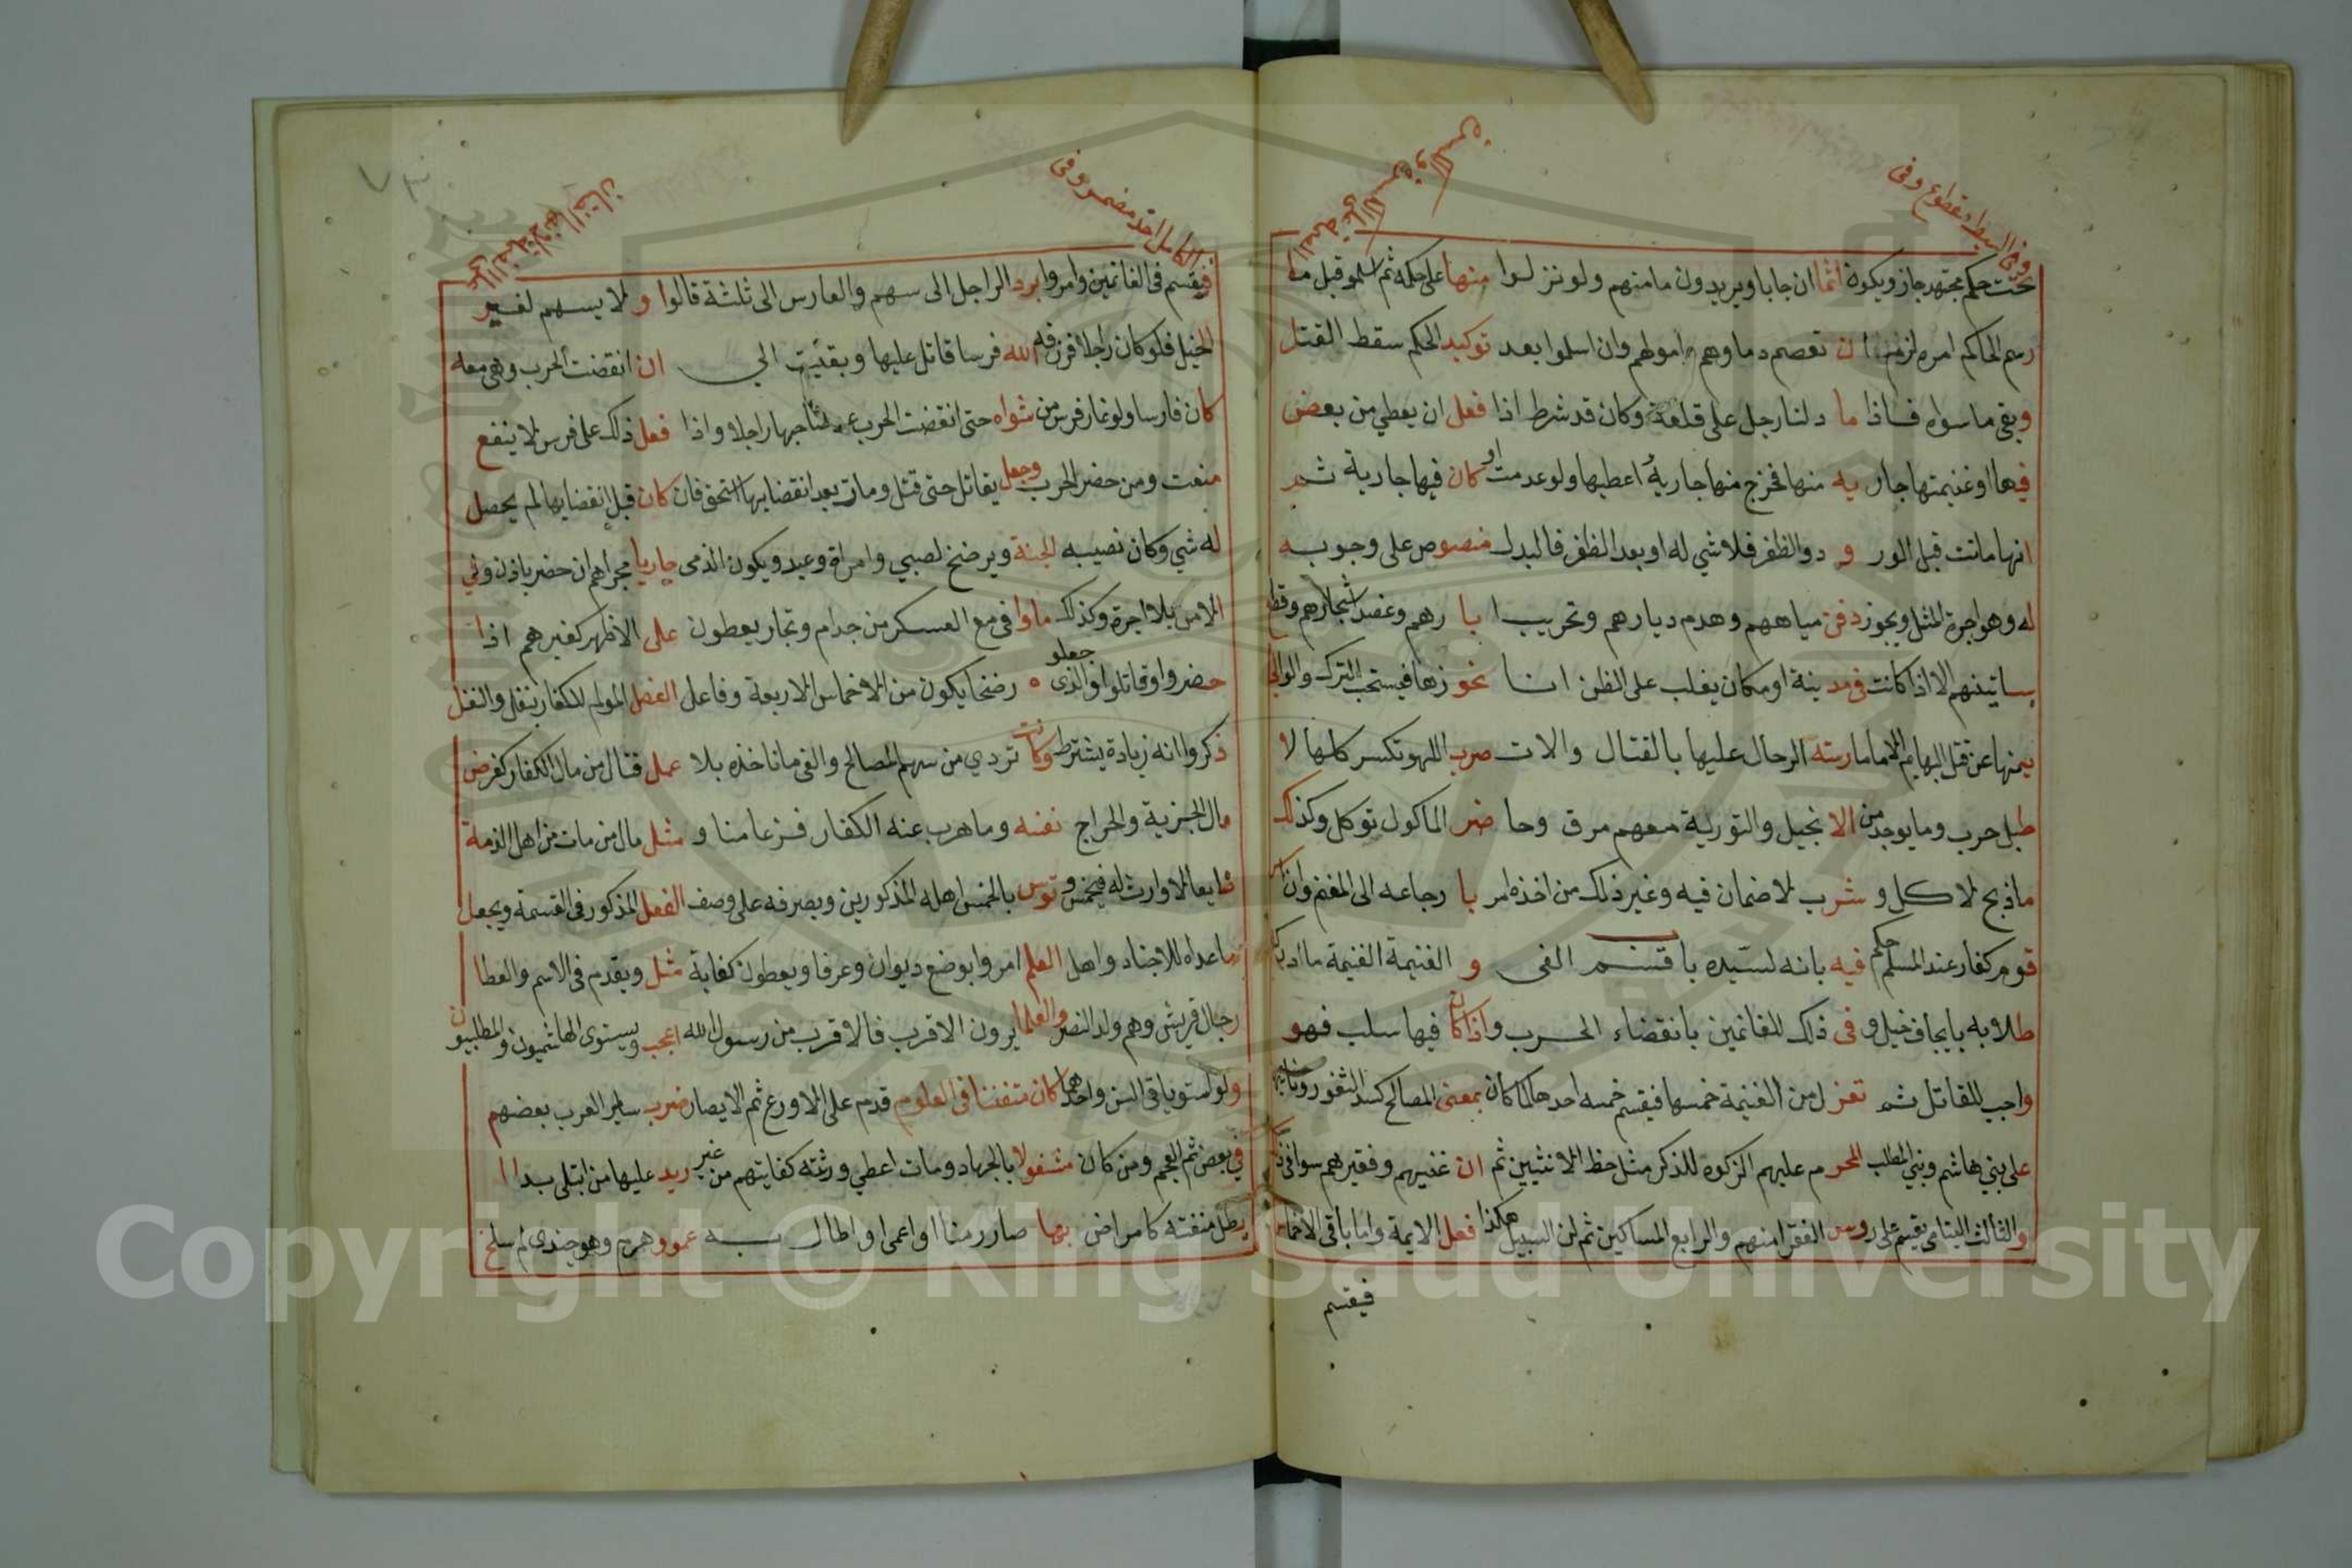 وفى البسيط مقطوع وفى
تحت حكم مجتهد جاز ويكون اثما ان جابا ويريدون مامنهم ولو نزلوا منها على حكمه ثم اسلموا قبل ما
رسم الحاكم امره لزمنا ان تعصم دماوهم واموالهم وان اسلموا بعد توكيد الحكم سقط القتل
وبقى ما سواه فاذا ما دلنا رجل على قلعة وكان قد شرط اذا فعل ان يعطي من بعض
فيها او غنيمتها جاريه منها فخرج منها جارية اعطيها ولو عدمت او كان فيها جارية ثم
انها ماتت قبل الور و د والظفر فلا شي له او بعد الظفر فالبدل منصوص على وجوبه
له وهو اجرة المثل ويجوز دفن مياههم وهدم ديارهم وتخريب ا با رهم وعضد اشجارهم وقطع
بساتينهم الا اذا كانت فى مدينة او مكان يغلب على الظن انا نحوزها فيستحب الترك والوالى
يمنها عن قتل البهايم الا ما مارسته الرجال عليها بالقتال والات ضرب اللهو تكسر كلها لا
طبل حرب وما يوجد من الانجيل والتورية معهم مرق وحا ضر الماكول توكل وكذلك
ما ذبح لاكل و شرب لا ضمان فيه وغير ذلك من اخذه امر با رجاعه الى المغنم وان
قوم كفار عند المسلم حكم فيه بانه لسيده باقسم الفى و الغنيمة الغنيمة ما ادرك
طلابه بايجاف خيل و فى ذلك للغانمين بانقضاء الحرب واذا كان فيها سلب فهو
واجب للقاتل ثم تعزل من الغنيمة خمسها فيقسم خمسه احدها لما كان بمعنى المصالح كسد الثغور وثانيها
على بني هاشم وبني المطلب المحرم عليهم الزكوة للذكر مثل حظ الانثيين ثم ان غنيهم وفقيرهم سوا فى ذلك
والثالث اليتامى يقيم على روس الفقرا منهم والرابع المساكين ثم لابن السبيل هكذا فعل الايمة واما باقى الاخماس
فيقسم
الكامل احذ مضمر وفى
فيقسم فى الغانمين وامروا برد الراجل الى سهم والفارس الى ثلثة قالوا و لا يسهم لغير
الخيل فلو كان راجلا فرزقه الله فرسا قاتل عليها وبقيت الى ان انقضت الحرب وهى معه
كان فارسا ولو غار فرس من شواه حتى انقضت الحرب راجلا واذا فعل ذلك على فرس لا ينفع
منعت ومن حضر الحرب وجعل يقاتل حتى قتل ومات بعد انقضايها استحق فان كان قبل انقضايها لم يحصل
له شي وكان نصيبه الجنة ويرضخ لصبي وامراة وعبد ويكون الذمى جاريا مجراهم ان حضر باذن وفي
الامن بلا اجرة وكذلك ما وافى مع العسكر من خدام وتجار يعطون على الاظهر كغيرهم اذا
حضروا وقاتلوا والذى جعلو ه رضخا يكون من الاخماس الاربعة وفاعل الفضل المولم للكفار ينفل والنفل
ذكروا انه زيادة يشترط وكانت تردي من سهم المصالح والفى ما ناخذه بلا عمل قتال من مال الكفار كفرض
مال الجزية والخراج نفسه وما هرب عنه الكفار فزعا منا و مثل مال من مات من اهل الذمة
ضايعا لا وارث له فيخمس وتوس بالخمس اهله المذكورين ويصرفه على وصف الفعل المذكور فى القسمة ويجعل
ما عداه للاجناد واهل العلم امروا بوضع ديوان وعرفا ويعطون كفاية مثل ويقدم فى الاسم والعطا
رجال قريش وهم ولد النضر والعلما يرون الاقرب فالاقرب من رسول الله اعجب ويستوى الهاشميون والمطلبيون
ولو استويا فى السن واحدهما كان متفننا فى العلوم قدم على الاورع ثم الانصار ضرب ساير العرب بعضهم
في بعض ثم العجم ومن كان مشغولا بالجهاد ومات اعطي ورثته كفايتهم من غير ريد عليها من ابتلى بدا ا
يطل منفته كامراض بها صار زمنا او اعمى او اطال به عمو وهرم وهو جندى لم